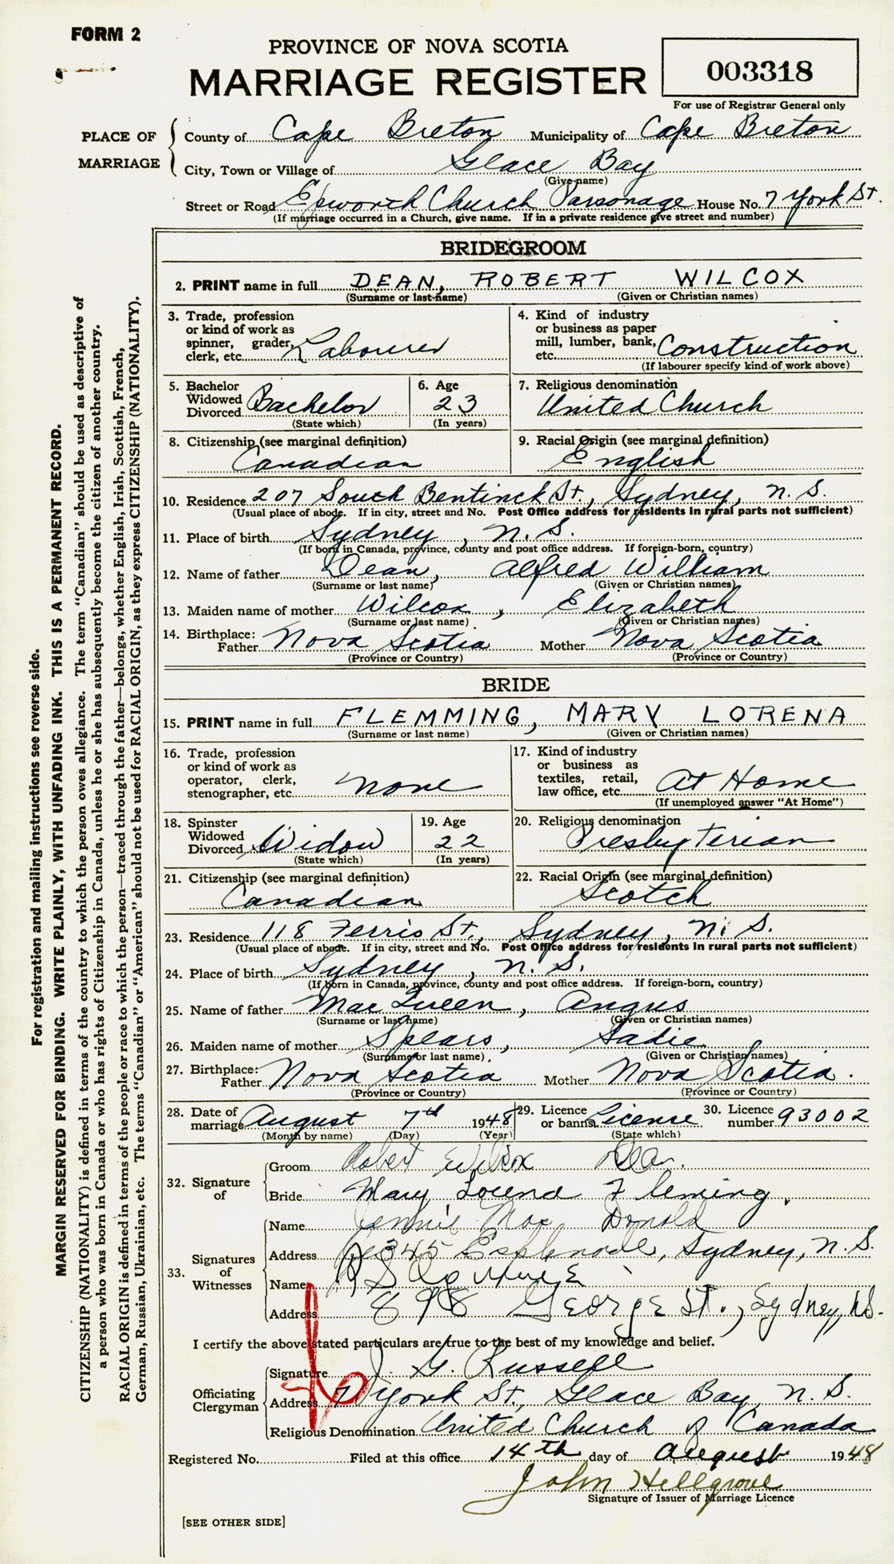 FORM 2
PROVINCE OF NOVA SCOTIA
MARRIAGE REGISTER
003318
For use of Registrar General only
PLACE OF MARRIAGE
County of Cape Breton Municipality of Cape Breton
City, Town or Village of Glace Bay
(Give name)
Street or Road Epworth Church Parsonage House No. 7 York St.
(If marriage occurred in a Church, give name. If in a private residence give street and number)
BRIDEGROOM
2. PRINT name in full DEAN, ROBERT WILCOX
(Surname or last name) (Given or Christian names)
3. Trade, profession or kind of work as spinner, grader, clerk, etc. Labourer
4. Kind of industry or business as paper mill, lumber, bank, etc. Construction
(If labourer specify kind of work above)
5. Bachelor Widowed Divorced Bachelor
(State which)
6. Age 23
(In years)
7. Religious denomination United Church
8. Citizenship (see marginal definition) Canadian
9. Racial Origin (see marginal definition) English
10. Residence 207 South Bentinck St., Sydney, N.S.
(Usual place of abode. If in city, street and No. Post Office address for residents in rural parts not sufficient)
11. Place of birth Sydney, N.S.
(If born in Canada, province, county and post office address. If foreign-born, country)
12. Name of father Dean, Alfred William
(Surname or last name) (Given or Christian names)
13. Maiden name of mother Wilcox, Elizabeth
(Surname or last name) (Given or Christian names)
14. Birthplace: Father Nova Scotia Mother Nova Scotia
(Province or Country) (Province or Country)
BRIDE
15. PRINT name in full FLEMMING, MARY LORENA
(Surname or last name) (Given or Christian names)
16. Trade, profession or kind of work as operator, clerk, stenographer, etc. none
17. Kind of industry or business as textiles, retail, law office, etc. At Home
(If unemployed answer "At Home")
18. Spinster Widowed Divorced Widow
(State which)
19. Age 22
(In years)
20. Religious denomination Presbyterian
21. Citizenship (see marginal definition) Canadian
22. Racial Origin (see marginal definition) Scotch
23. Residence 118 Ferris St., Sydney, N.S.
(Usual place of abode. If in city, street and No. Post Office address for residents in rural parts not sufficient)
24. Place of birth Sydney, N.S.
(If born in Canada, province, county and post office address. If foreign-born, country)
25. Name of father MacQueen, Angus
(Surname or last name) (Given or Christian names)
26. Maiden name of mother Spears, Sadie
(Surname or last name) (Given or Christian names)
27. Birthplace: Father Nova Scotia Mother Nova Scotia.
(Province or Country) (Province or Country)
28. Date of marriage August 7th 1948
(Month by name) (Day) (Year)
29. Licence or banns License
(State which)
30. Licence number 93002
32. Signature of
Groom Robert Wilcox
Bride Mary Lorena Fleming.
33. Signatures of Witnesses
Name Jennie MacDonald
Address 345 Esplanade, Sydney, N.S.
Name
Address 898 George St., Sydney, N.S.
I certify the above stated particulars are true to the best of my knowledge and belief.
Officiating Clergyman
Signature J. G. Russell
Address 7 York St., Glace Bay, N.S.
Religious Denomination United Church of Canada
Registered No. Filed at this office 14th day of August 1948
John Hellgrove
Signature of Issuer of Marriage Licence
[SEE OTHER SIDE]
For registration and mailing instructions see reverse side.
MARGIN RESERVED FOR BINDING. WRITE PLAINLY, WITH UNFADING INK. THIS IS A PERMANENT RECORD.
CITIZENSHIP (NATIONALITY) is defined in terms of the country to which the person owes allegiance. The term "Canadian" should be used as descriptive of
a person who was born in Canada or who has rights of Citizenship in Canada, unless he or she has subsequently become the citizen of another country.
RACIAL ORIGIN is defined in terms of the people or race to which the person—traced through the father—belongs, whether English, Irish, Scottish, French,
German, Russian, Ukrainian, etc. The terms "Canadian" or "American" should not be used for RACIAL ORIGIN, as they express CITIZENSHIP (NATIONALITY).